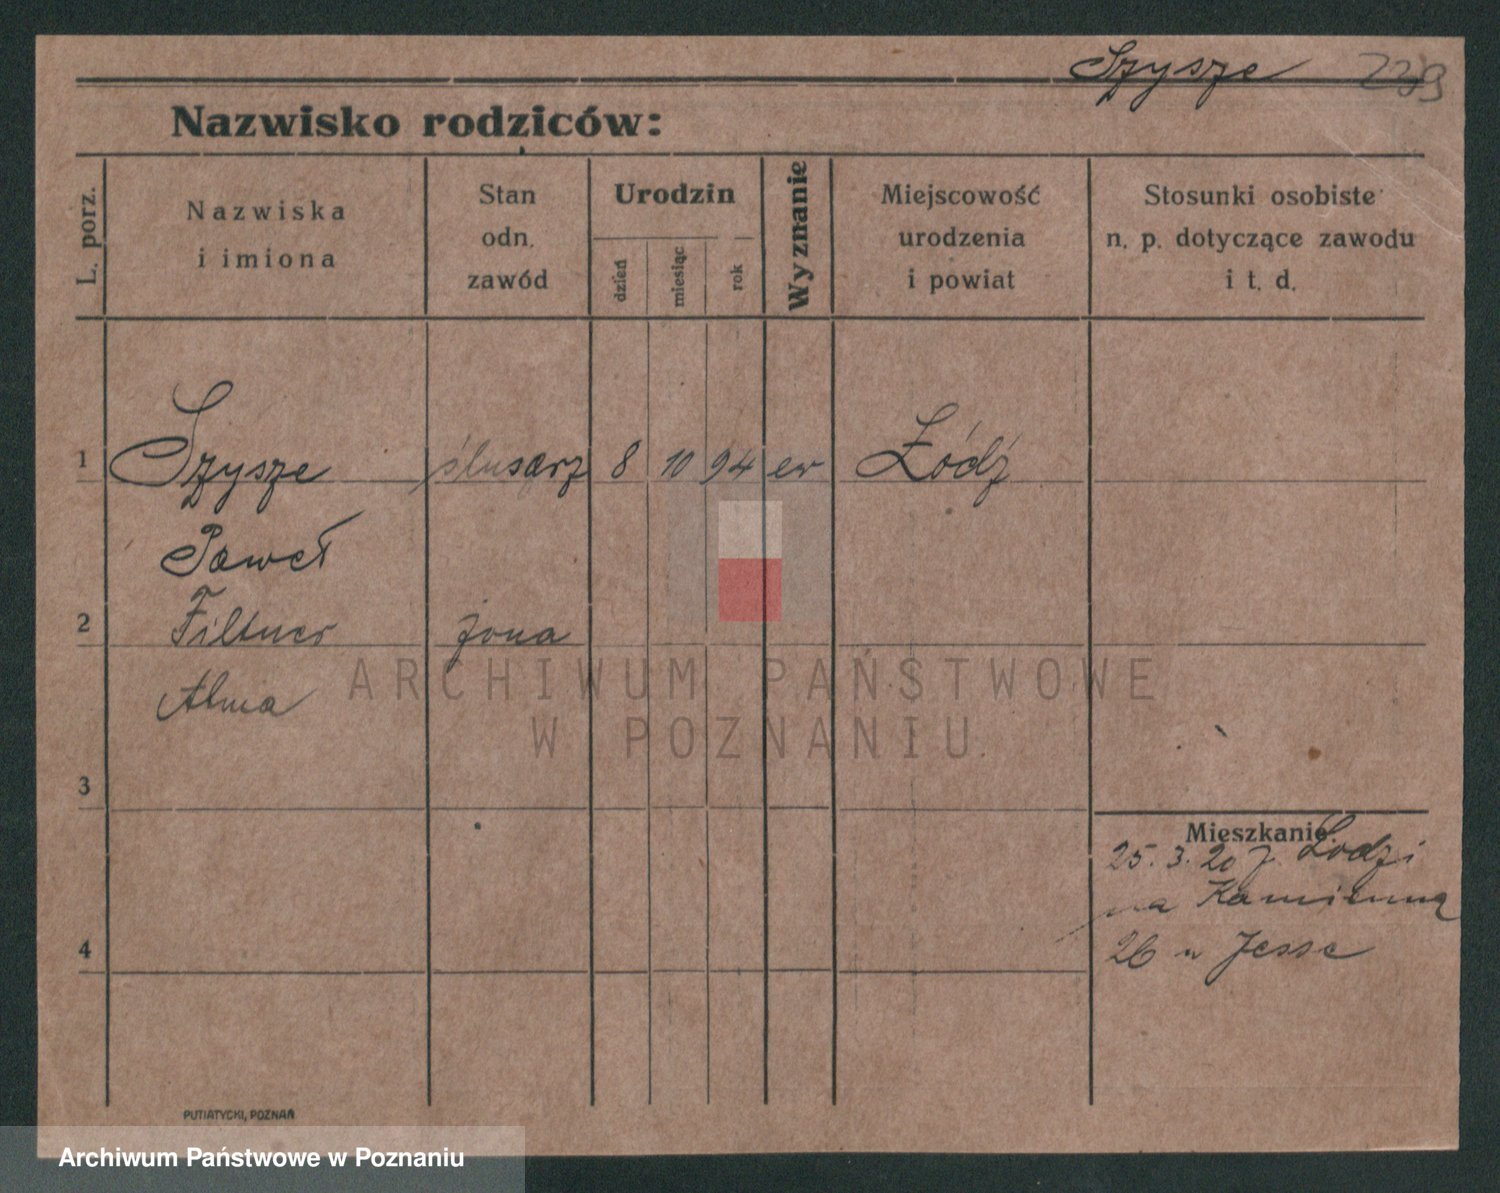 Szysze 229
Nazwisko rodziców:
L. porz.
Nazwiska
i imiona
Stan
odn.
zawód
Urodzin
dzień
miesiąc
rok
Wyznanie
Miejscowość
urodzenia
i powiat
Stosunki osobiste
n. p. dotyczące zawodu
i t. d.
1 Szysze ślusarz 8 10 94 ew Łódź
Paweł
2 Filtner żona
Alma
3
Mieszkanie.
25. 3. 20 z Łodzi
na Kamienną
4
26 u Jesse
PUTIATYCKI, POZNAŃ
ARCHIWUM PAŃSTWOWE
W POZNANIU
Archiwum Państwowe w Poznaniu